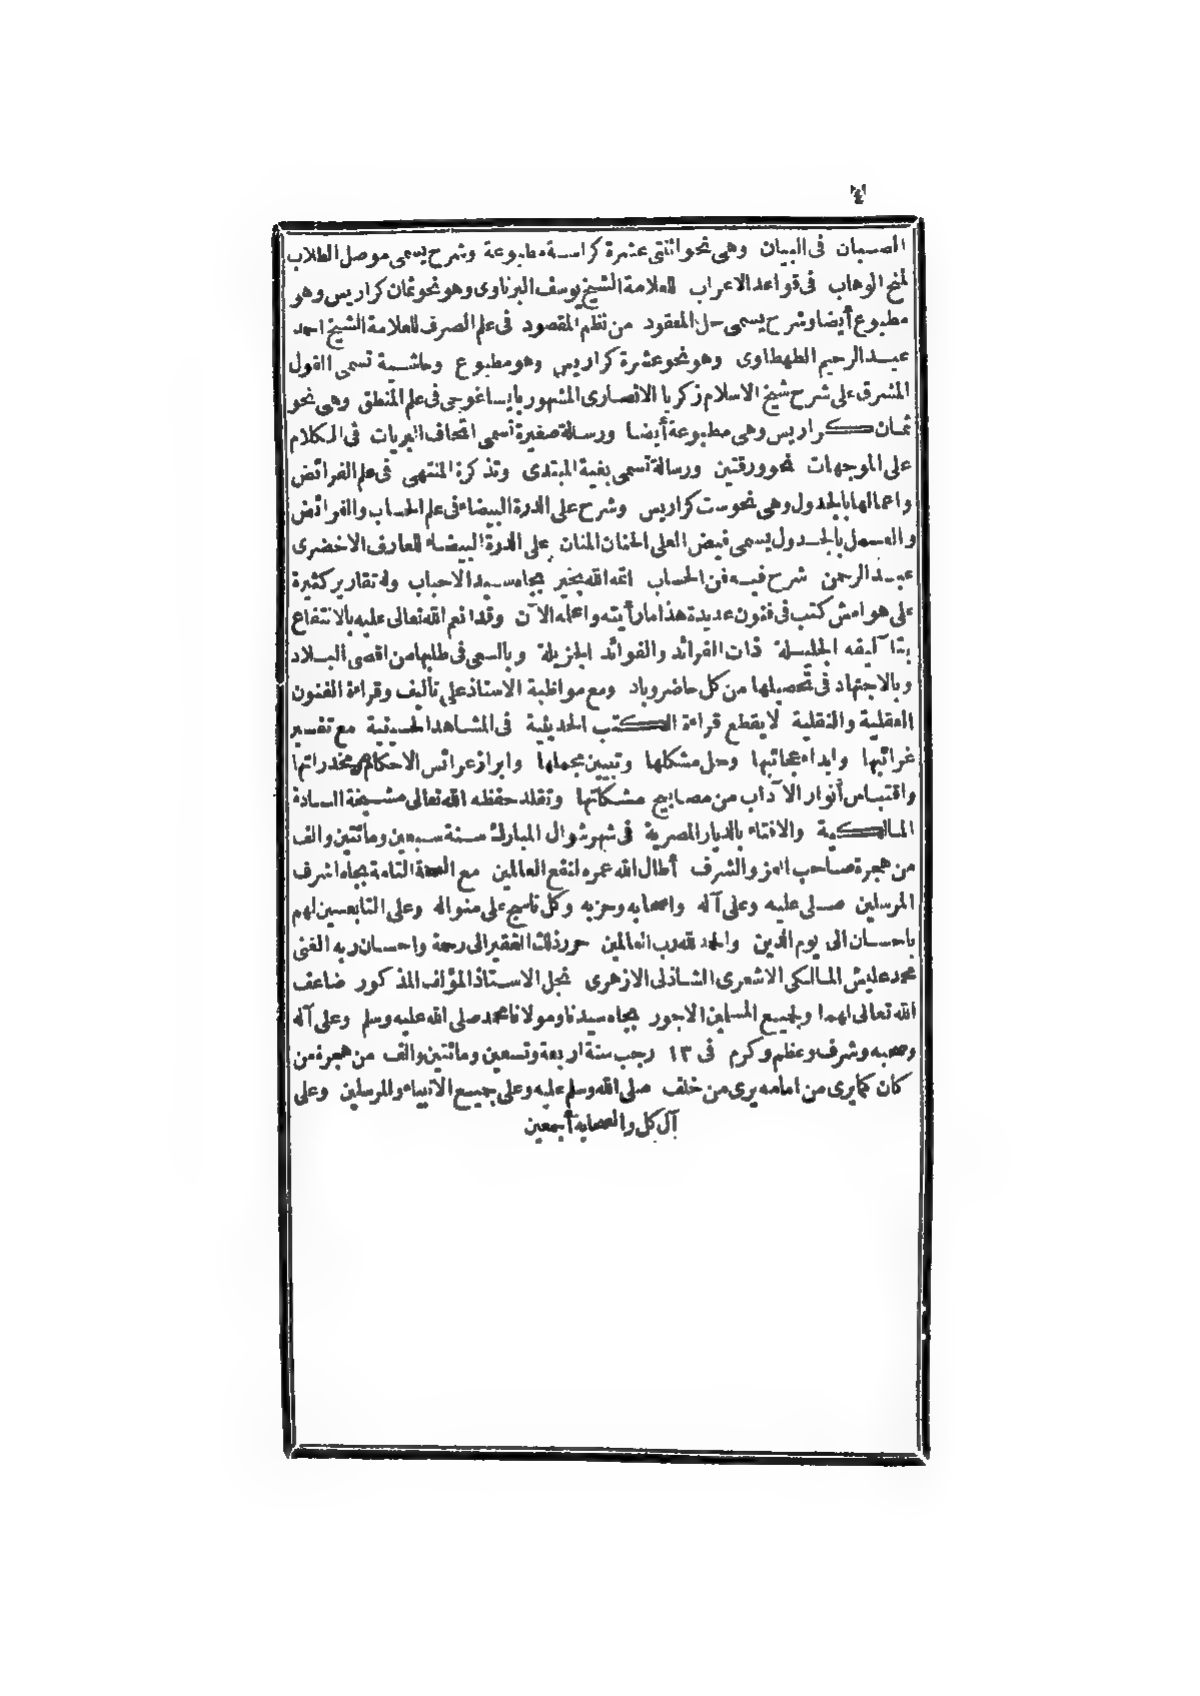 ٤
الصبان فى البيان وهى نحو اثنتى عشرة كراسة مطبوعة وشرح يسمى موصل الطلاب
لمنح الوهاب فى قواعد الاعراب للعلامة الشيخ يوسف البرناوى وهو نحو ثمان كراريس وهو
مطبوع أيضا وشرح يسمى حل المعقود من نظم المقصود فى علم الصرف للعلامة الشيخ احمد
عبد الرحيم الطهطاوى وهو نحو عشرة كراريس وهو مطبوع وحاشية تسمى القول
المشرق على شرح شيخ الاسلام زكريا الانصارى المشهور بايساغوجى فى علم المنطق وهى نحو
ثمان كراريس وهى مطبوعة أيضا ورسالة صغيرة تسمى اتحاف البريات فى الكلام
على الموجهات نحو ورقتين ورسالة تسمى بغية المبتدى وتذكرة المنتهى فى علم الفرائض
واعمالها بالجدول وهى نحو ست كراريس وشرح على الدرة البيضاء فى علم الحساب والفرائض
والعمل بالجدول يسمى فيض العلى الحنان المنان على الدرة البيضاء للعارف الاخضرى
عبد الرحمن شرح فيه فن الحساب اتمه الله بخير بجاه سيد الاحباب وله تقارير كثيرة
على هوامش كتب فى فنون عديدة هذا ما رأيته واعلمه الآن وقد انعم الله تعالى عليه بالانتفاع
بتآليفه الجليلة ذات الفرائد والفوائد الجزيلة وبالسعى فى طلبها من اقصى البلاد
وبالاجتهاد فى تحصيلها من كل حاضر وباد ومع مواظبة الاستاذ على تأليف وقراءة الفنون
العقلية والنقلية لا يقطع قراءة الكتب الحديثية فى المشاهد الحسينية مع تفسير
غرائبها وابداء عجائبها وحل مشكلها وتبيين مجملها وابراز عرائس الاحكام من مخدراتها
واقتباس أنوار الآداب من مصابيح مشكاتها وتقلد حفظه الله تعالى مشيخة السادة
المالكية والافتاء بالديار المصرية فى شهر شوال المبارك سنة سبعين ومائتين والف
من هجرة صاحب العز والشرف أطال الله عمره لنفع العالمين مع الصحة التامة بجاه اشرف
المرسلين صلى عليه وعلى آله واصحابه وحزبه وكل ناسج على منواله وعلى التابعين لهم
باحسان الى يوم الدين والحمد لله رب العالمين حرر ذلك الفقير الى رحمة واحسان ربه الغنى
محمد عليش المالكى الاشعرى الشاذلى الازهرى نجل الاستاذ المؤلف المذكور ضاعف
الله تعالى لهما ولجميع المسلمين الاجور بجاه سيدنا ومولانا محمد صلى الله عليه وسلم وعلى آله
وصحبه وشرف وعظم وكرم فى ١٣ رجب سنة اربعة وتسعين ومائتين والف من هجرة من
كان كما يرى من امامه يرى من خلف صلى الله وسلم عليه وعلى جميع الانبياء والمرسلين وعلى
آل كل والصحابة أجمعين